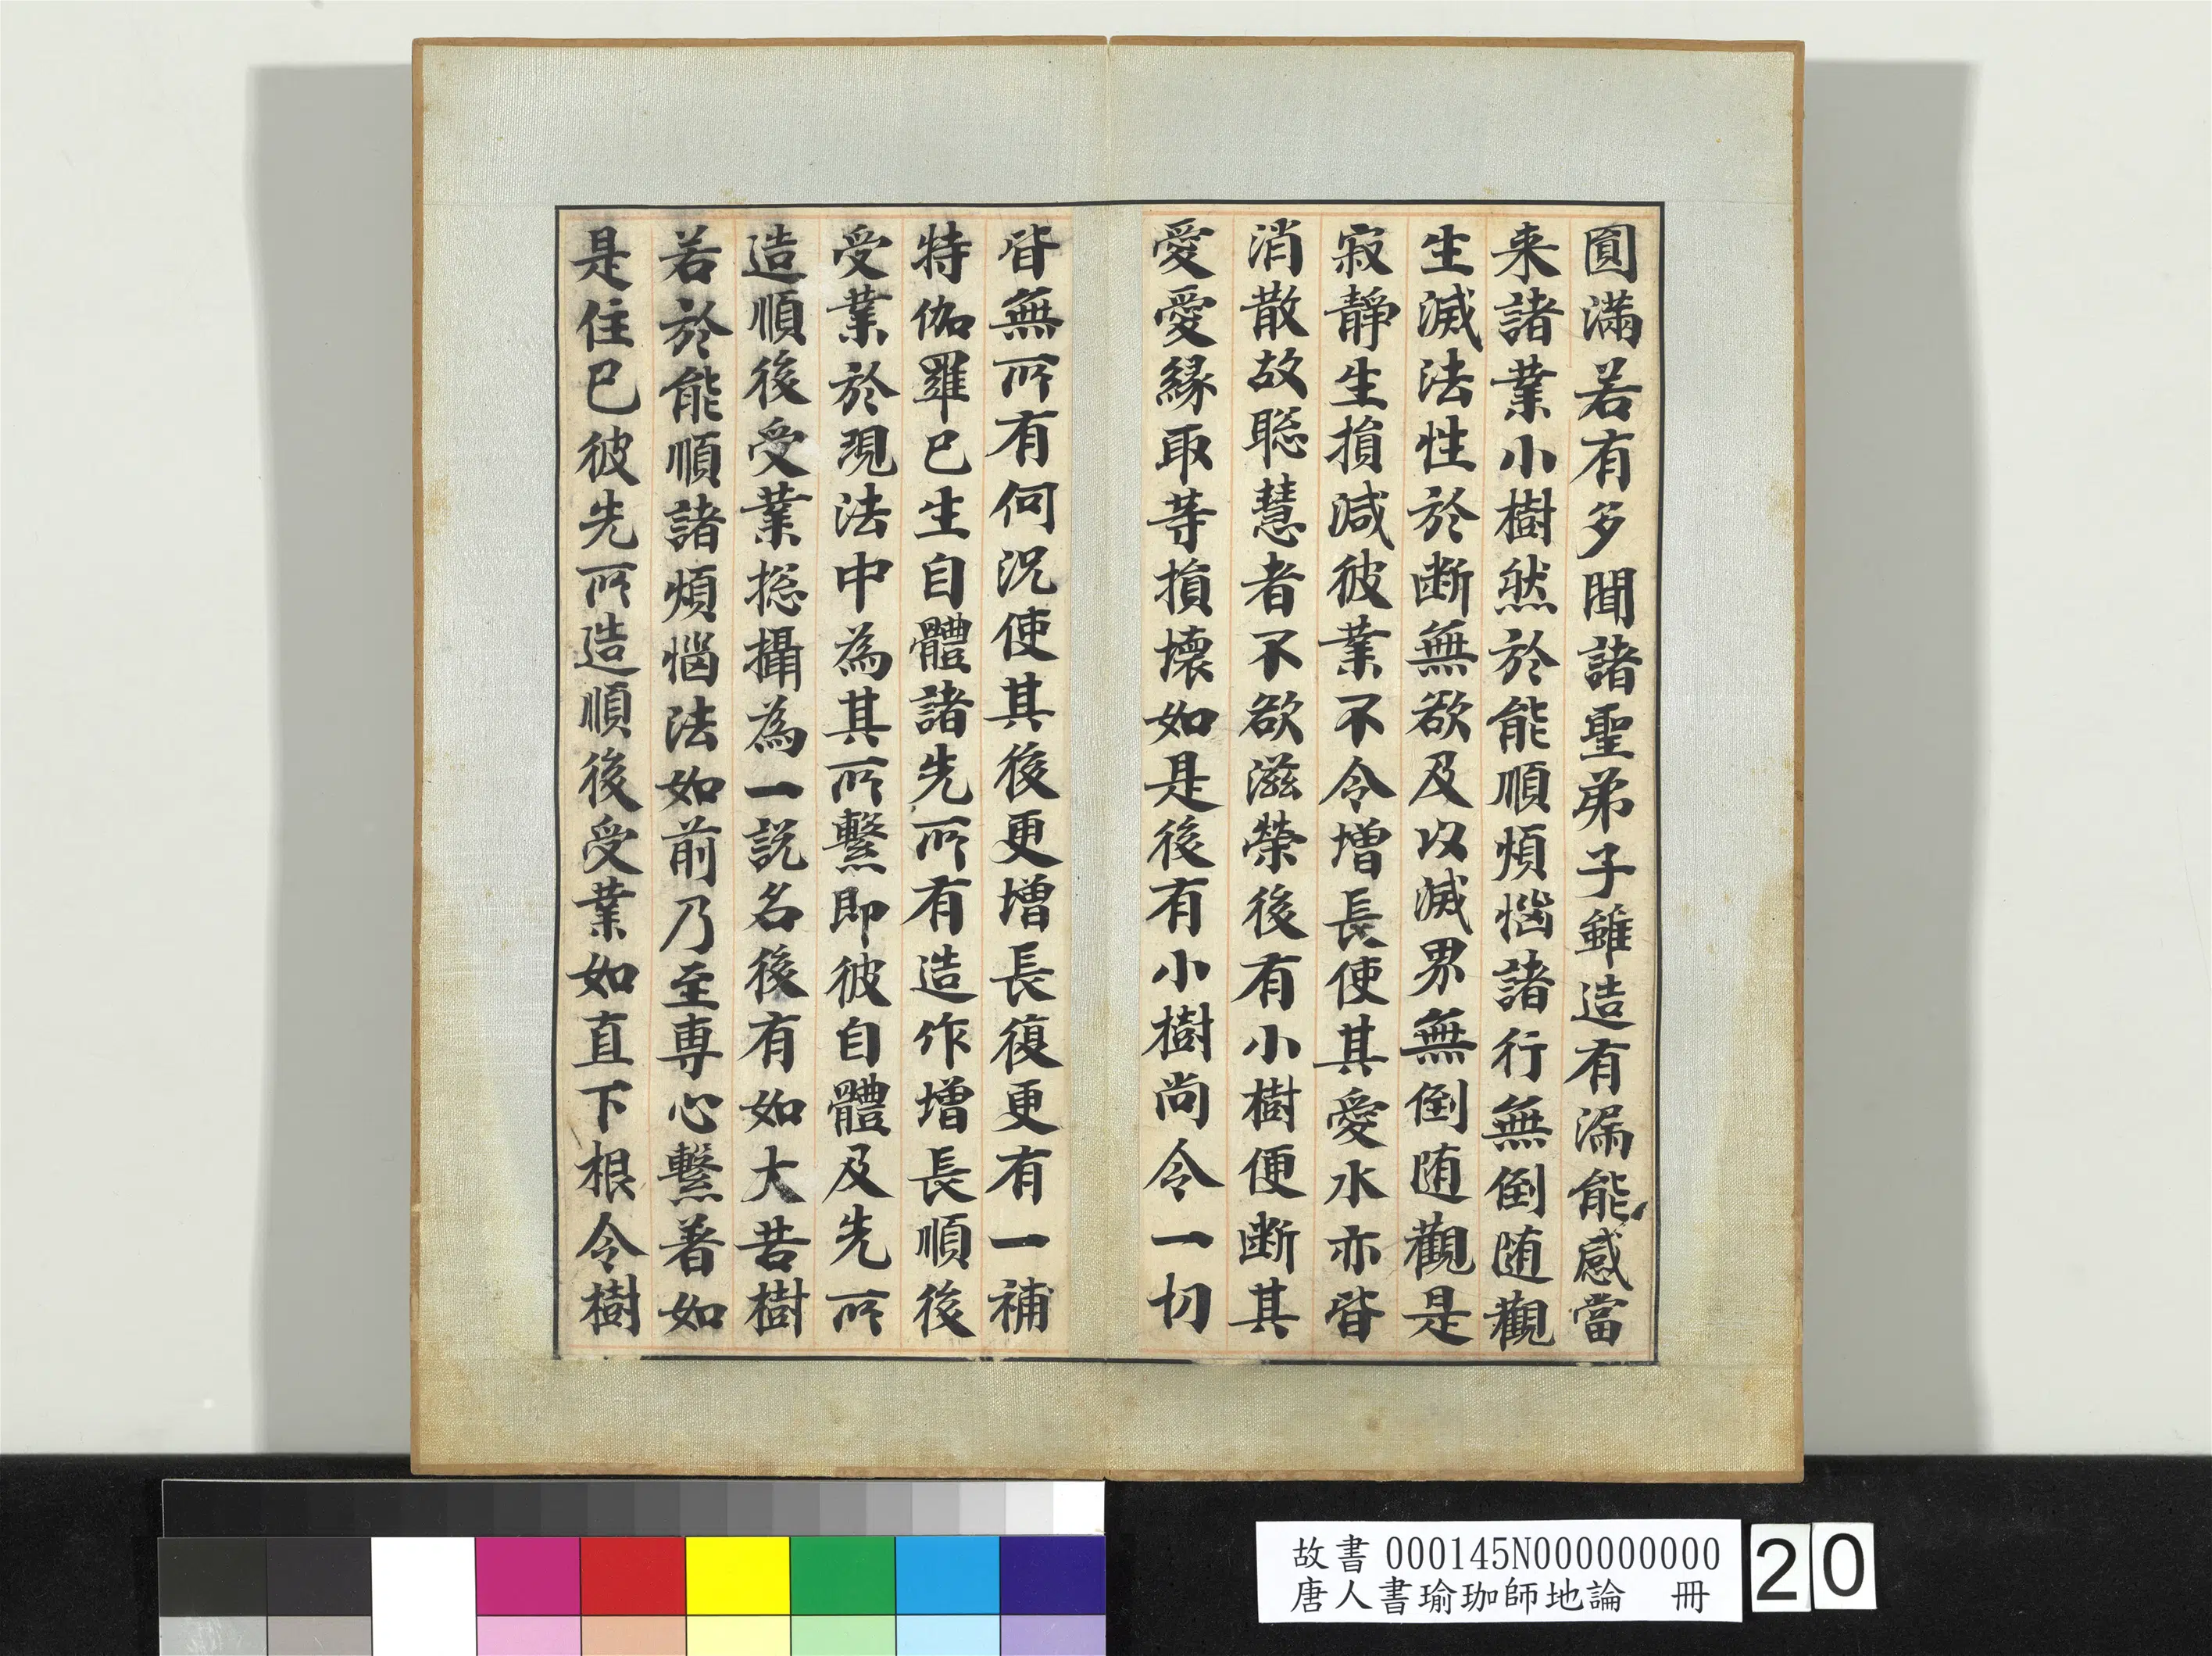 圓滿若有多聞諸聖弟子雖造有漏能感當
来諸業小樹然於能順煩惱諸行無倒随觀
生滅法性於断無欲及以滅界無倒随觀是
寂静生損減彼業不令增長使其愛水亦皆
消散故聡慧者不欲滋榮後有小樹便断其
愛愛緣取等損壞如是後有小樹尚令一切
皆無所有何況使其後更增長復更有一補
特伽羅已生自體諸先所有造作增長順後
受業於現法中為其所繫即彼自體及先所
造順後受業揔攝為一說名後有如大苦樹
若於能順諸煩惱法如前乃至專心繫著如
是住已彼先所造順後受業如直下根令樹
故書 000145N000000000
唐人書瑜珈師地論 冊
20